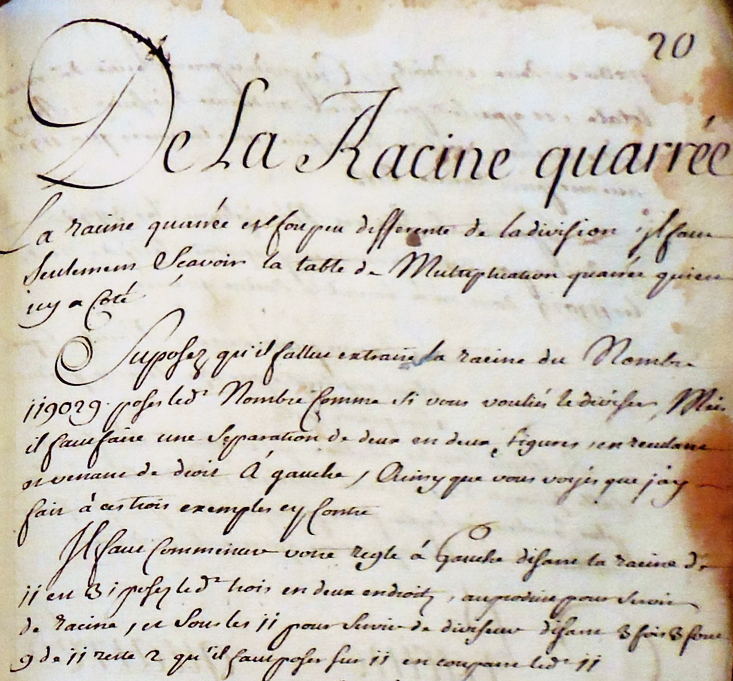 20
De La Racine quarrée
La racine quarrée est fou peu differente de la division il faut
seulement Sçavoir la table de Multiplication quarrée qui est
icy a Coté
Suposez qu'il fallut extraire la racine du Nombre
119029 posez led.t Nombre Comme si vous vouliés le diviser, Mais
il faut faire une separation de deux en deux figures, en
et venant de droit A gauche, Ainsy que vous voyés que j'ay
fait à ces trois exemples cy Contre
Il faut Commencer votre regle à Gauche disant la racine de
11 est 3 posez led.t trois en deux endroits, au produit pour servir
de racine, et sous les 11 pour servir de diviseur disant 3 fois 3 font
9 de 11 reste 2 qu'il faut poser sur 11 en coupant led.t 11